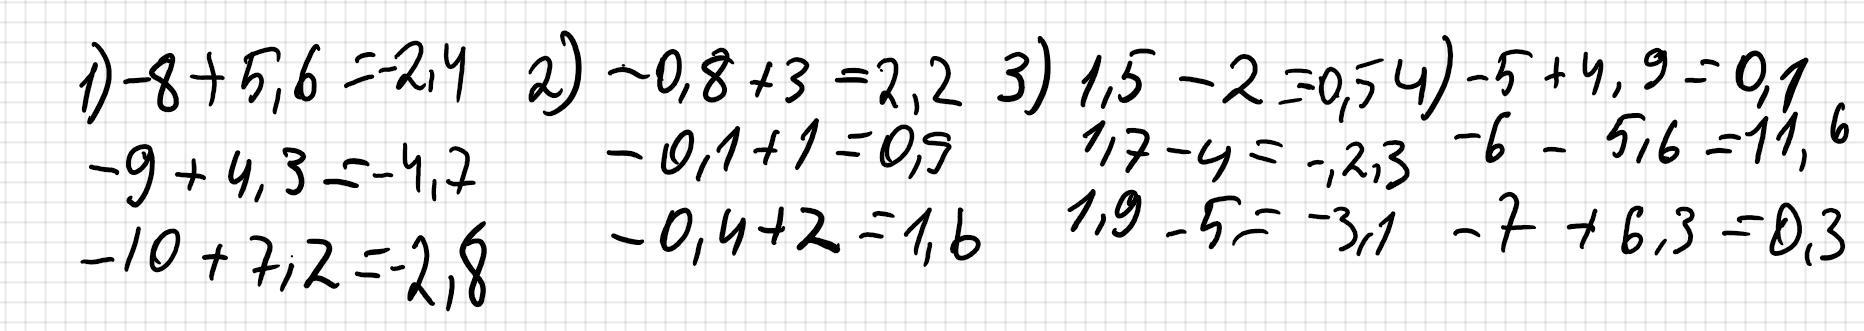 1) -8 + 5,6 = -2,4 2) -0,8 + 3 = 2,2 3) 1,5 - 2 = 0,5 4) -5 + 4,9 = 0,1
-9 + 4,3 = -4,7 -0,1 + 1 = 0,9 1,7 - 4 = -,2,3 -6 - 5,6 = 11,6
-10 + 7,2 = -2,8 -0,4 + 2 = 1,6 1,9 - 5 = -3,1 -7 + 6,3 = 0,3